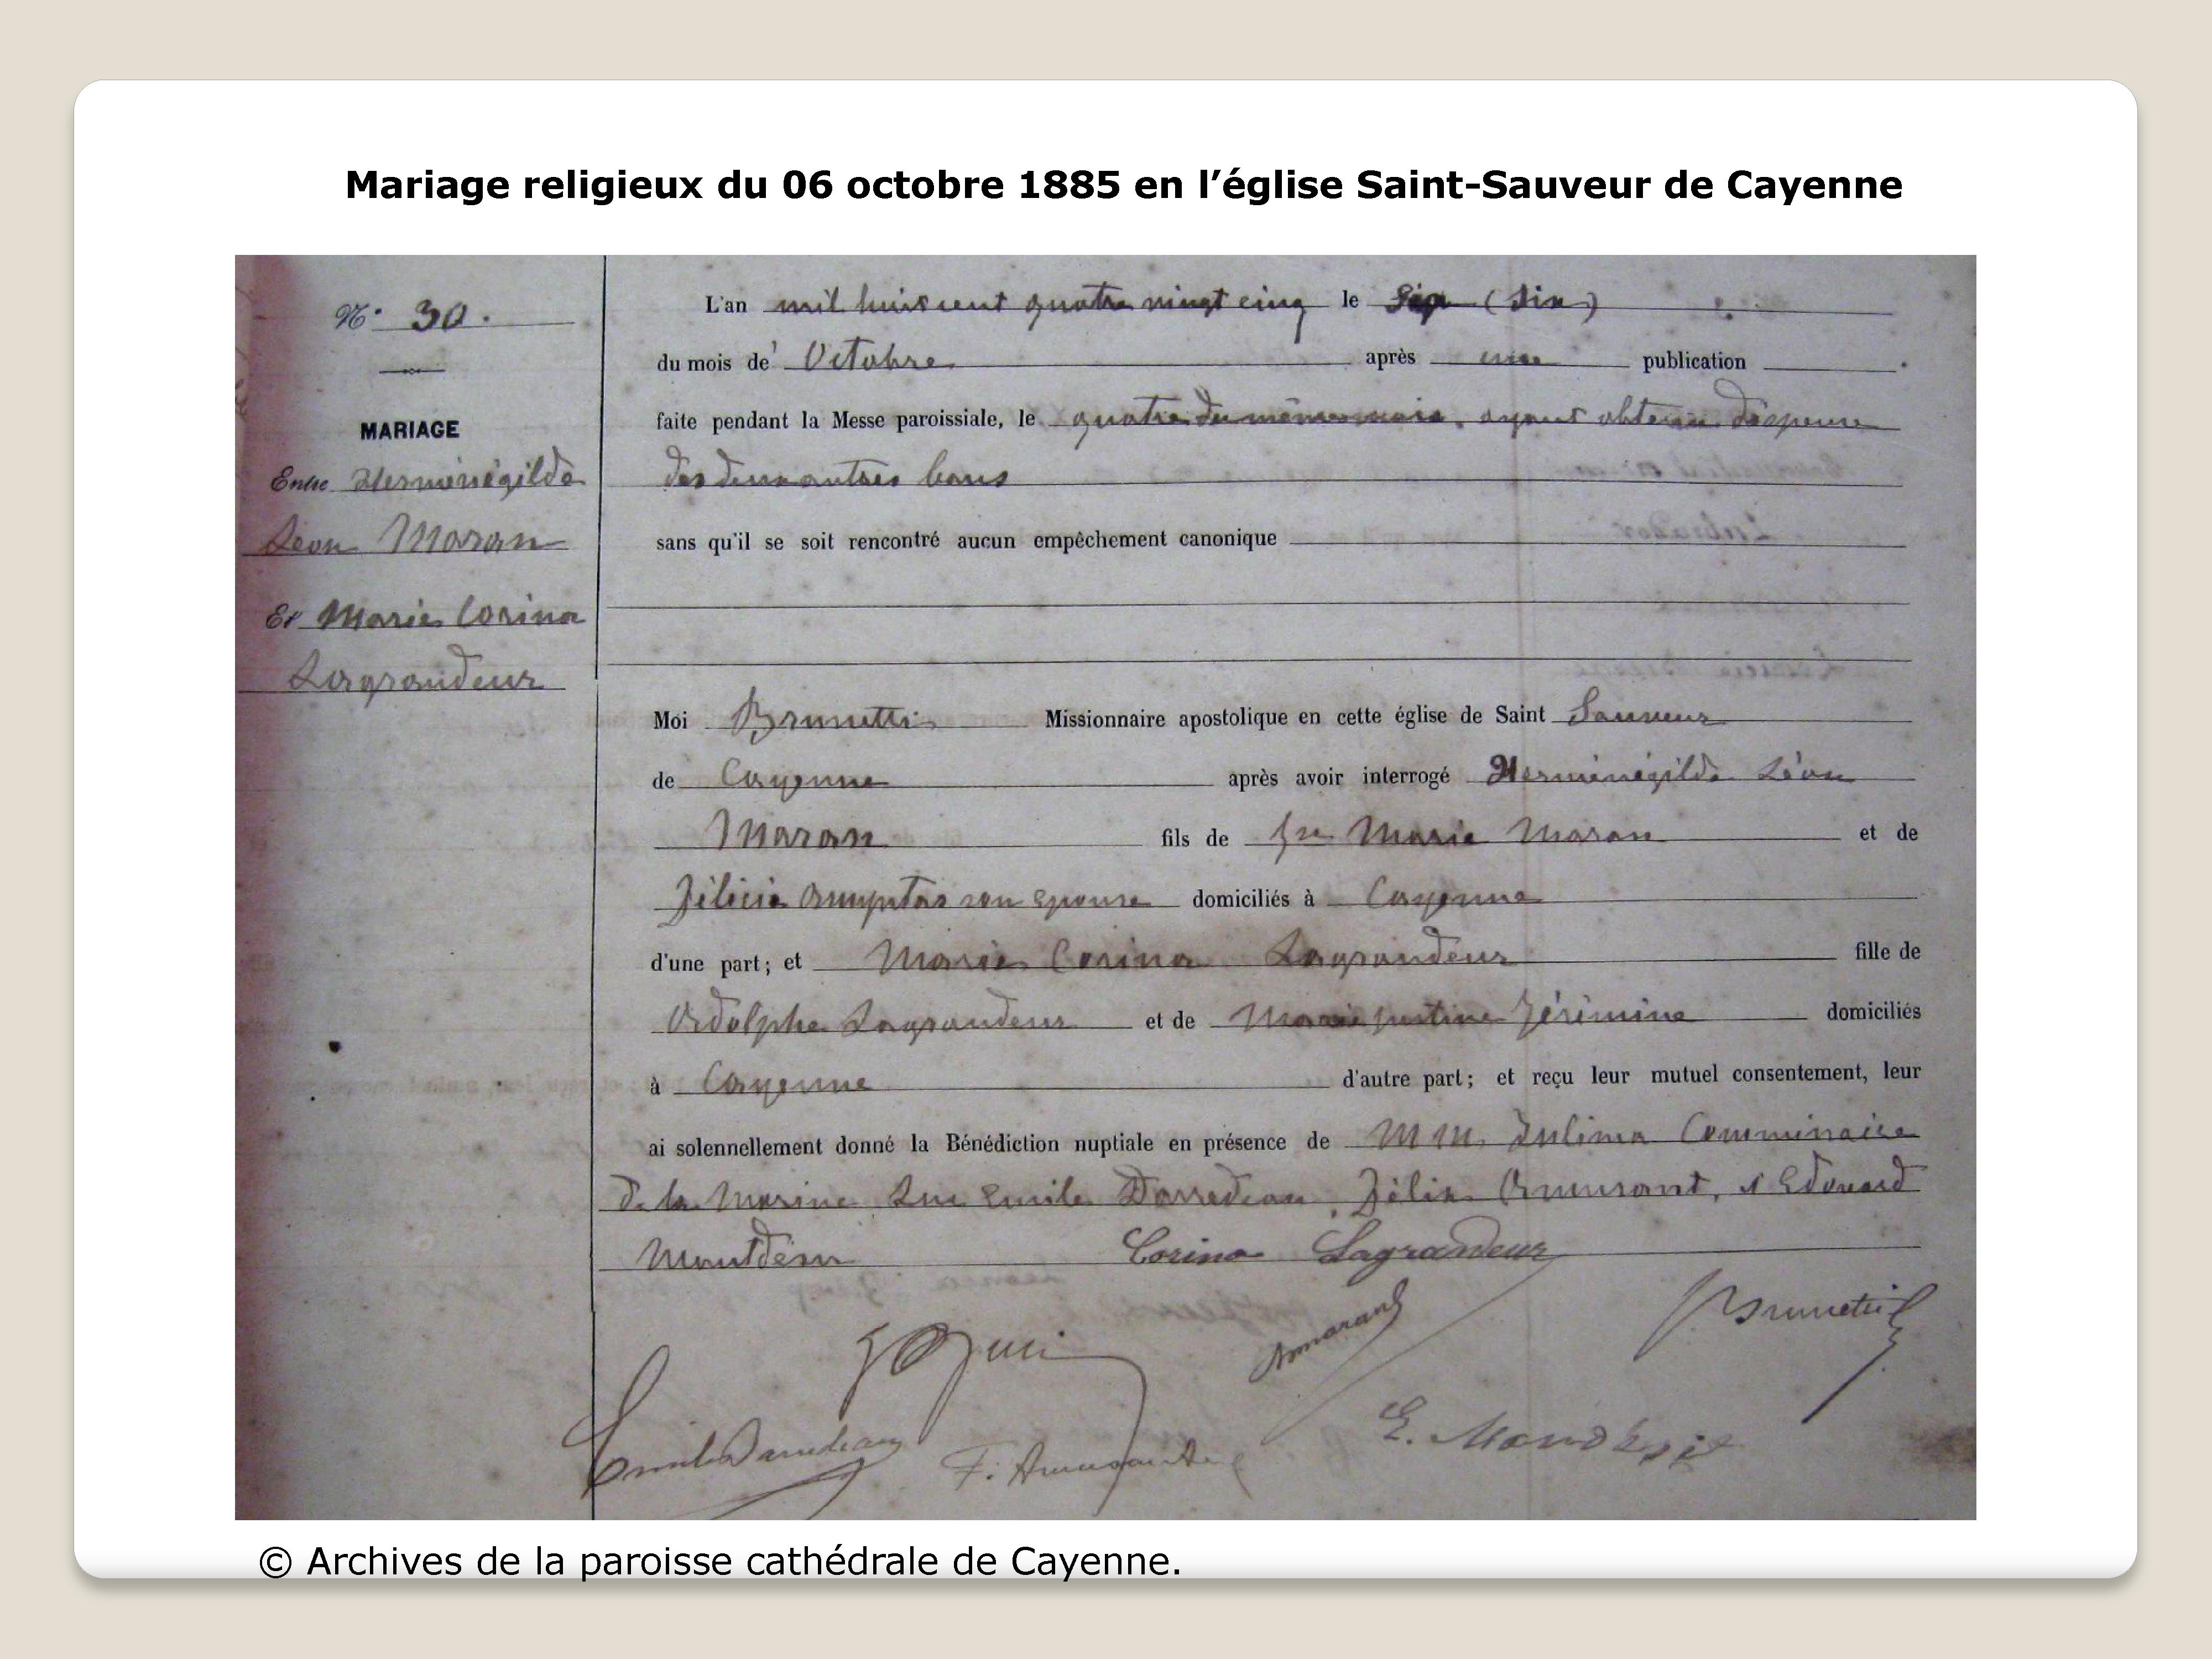 Mariage religieux du 06 octobre 1885 en l’église Saint-Sauveur de Cayenne
N° 30.
MARIAGE
Entre Herménégilde
Léon Maran
Et Marie Corina
Lagrandeur
L'an mil huit cent quatre vingt cinq le six (six)
du mois de Octobre après une publication
faite pendant la Messe paroissiale, le quatre du même mois, ayant obtenu dispense
des deux autres bans
sans qu'il se soit rencontré aucun empêchement canonique
Moi Brunetti Missionnaire apostolique en cette église de Saint Sauveur
de Cayenne après avoir interrogé Herménégilde Léon
Maran fils de Marie Maran et de
Félicie son épouse domiciliés à Cayenne
d'une part; et Marie Corina Lagrandeur fille de
Adolphe Lagrandeur et de Marie Justine Jérémine domiciliés
à Cayenne d'autre part; et reçu leur mutuel consentement, leur
ai solennellement donné la Bénédiction nuptiale en présence de MM. Commissaire
de la Marine Emile Darredeau, Félix Amusant, et Edouard
Corina Lagrandeur
Brunetti
F. Amusant
E.
© Archives de la paroisse cathédrale de Cayenne.